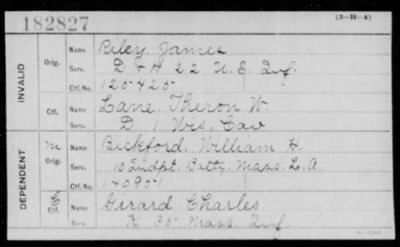 182827
(3—II—4)
INVALID
Orig.
Name Riley, James
Serv. D & H 22 U.S. Inf.
Ctf. No. 120420
Ctf.
Name Lane, Theron W.
Serv. D 1 Wis. Cav
DEPENDENT
M
Orig.
Name Bickford, William H.
Serv. 10 Indpt. Batty. Mass. L.A.
Ctf. No. 140904
C
Ctf.
Name Girard, Charles
Serv. K 35 Mass Inf